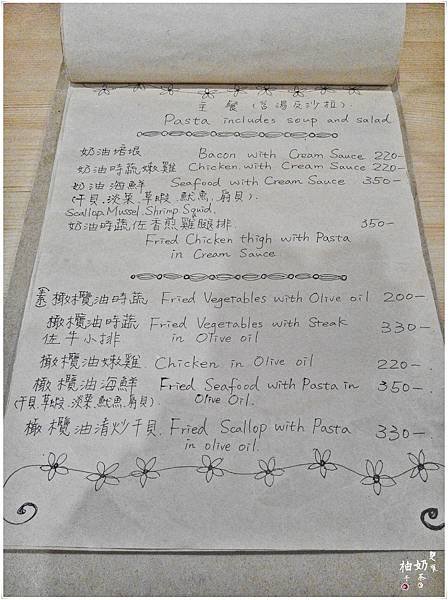 主 餐 (含湯及沙拉).
Pasta includes soup and salad
奶油培根 Bacon with Cream Sauce 220-
奶油時蔬嫩雞 Chicken with Cream Sauce 220-
奶油海鮮 Seafood with Cream Sauce 350-
(干貝.淡菜.草蝦.魷魚.扇貝).
Scallop.Mussel.Shrimp.Squid.
奶油時蔬佐香煎雞腿排 350-
Fried Chicken thigh with Pasta
in Cream Sauce
素 橄欖油時蔬 Fried Vegetables with Olive oil 200-
橄欖油時蔬 Fried Vegetables with Steak 330-
佐牛小排 in Olive oil
橄欖油嫩雞 Chicken in Olive oil 220-
橄欖油海鮮 Fried Seafood with Pasta in 350-
(干貝.草蝦.淡菜.魷魚.扇貝). Olive Oil.
橄欖油清炒干貝. Fried Scallop with Pasta 330-
in olive oil.
柚子
奶茶